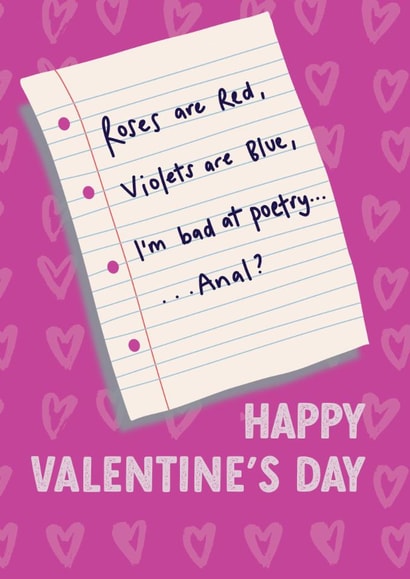 Roses are Red,
Violets are Blue,
I'm bad at poetry...
...Anal?
HAPPY
VALENTINE'S DAY